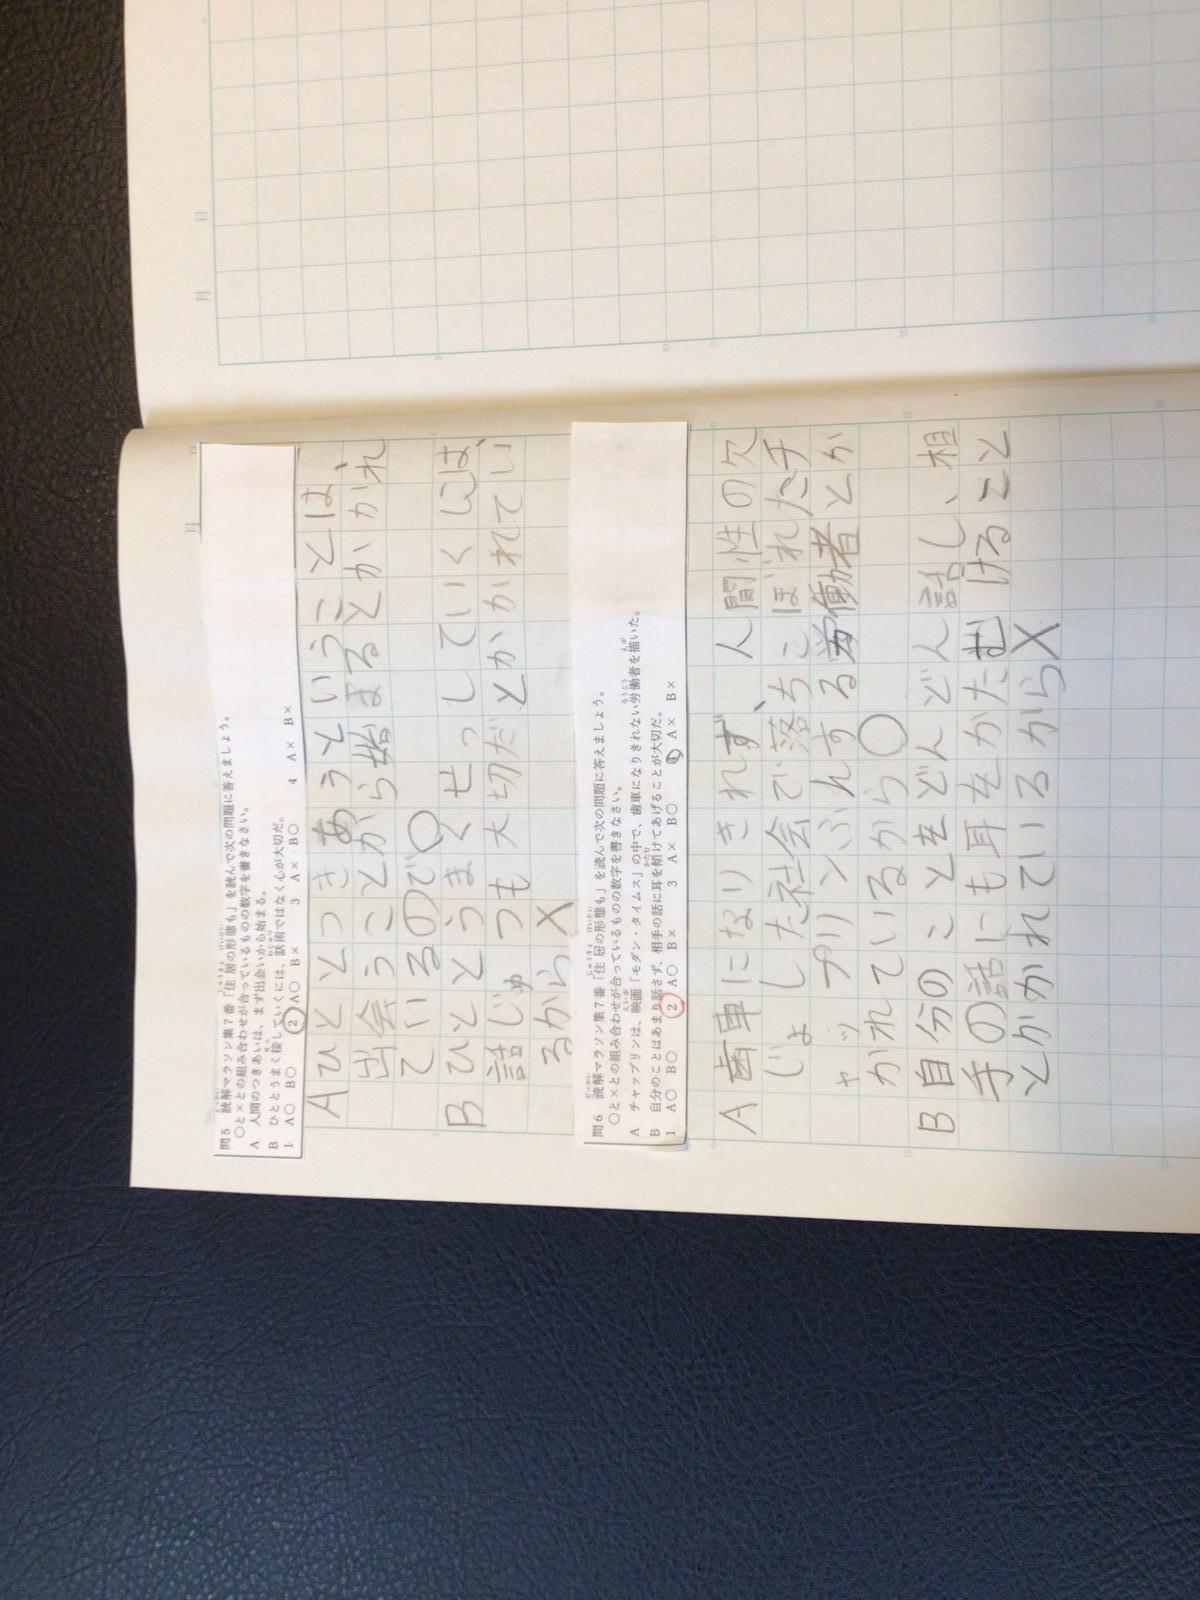 月 日
問5 読解マラソン集7番「住居の形態も」を読んで次の問題に答えましょう。
○と×との組み合わせが合っているものの数字を書きなさい。
A 人間のつきあいは、まず出会いから始まる。
B ひととうまく接していくには、話術ではなく心が大切だ。
1 A○ B○ 2 A○ B× 3 A× B○ 4 A× B×
A ひととつきあうということは
出会うことから始まるとかかれ
ているので○
B ひととうまくせっしていくには、
話じゅつも大切だとかかれてい
るから×
問6 読解マラソン集7番「住居の形態も」を読んで次の問題に答えましょう。
○と×との組み合わせが合っているものの数字を書きなさい。
A チャップリンは、映画「モダン・タイムス」の中で、歯車になりきれない労働者を描いた。
B 自分のことはあまり話さず、相手の話に耳を傾けてあげることが大切だ。
1 A○ B○ 2 A○ B× 3 A× B○ 4 A× B×
A 歯車になりきれず、人間性の欠
じょした社会で落ちこぼれたチ
ャップリンふんする労働者とか
かれているから○
B 自分のことをどんどん話し、相
手の話にも耳をかたむけること
とかかれているから×
月 日